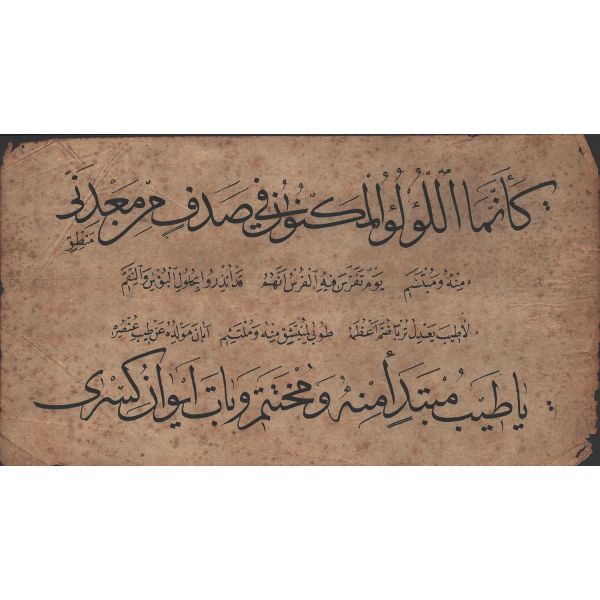 كَأَنَّمَا اللُّؤْلُؤُ الْمَكْنُونُ فِي صَدَفٍ مِنْ مَعْدِنَيْ مَنْطِقٍ
مِنْهُ وَمُبْتَسَمِ يَوْمٌ تَفَرَّسَ فِيهِ الْفُرْسُ أَنَّهُمُ قَدْ أُنْذِرُوا بِحُلُولِ الْبُؤْسِ وَالنِّقَمِ
لَا طِيبَ يَعْدِلُ تُرْبًا ضَمَّ أَعْظُمَهُ طُوبَى لِمُنْتَشِقٍ مِنْهُ وَمُلْتَثِمِ أَبَانَ مَوْلِدُهُ عَنْ طِيبِ عُنْصُرِهِ
يَا طِيبَ مُبْتَدَأٍ مِنْهُ وَمُخْتَتَمِ وَبَاتَ اِيوَانُ كِسْرَى